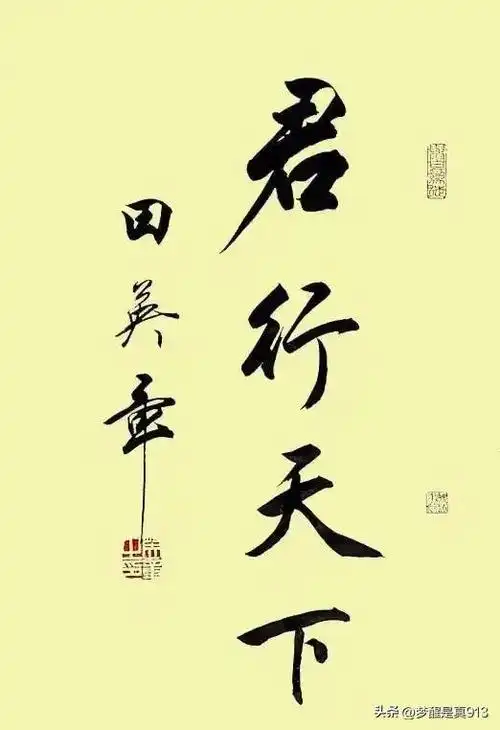 君行天下
田英章
头条 @梦醒是真913